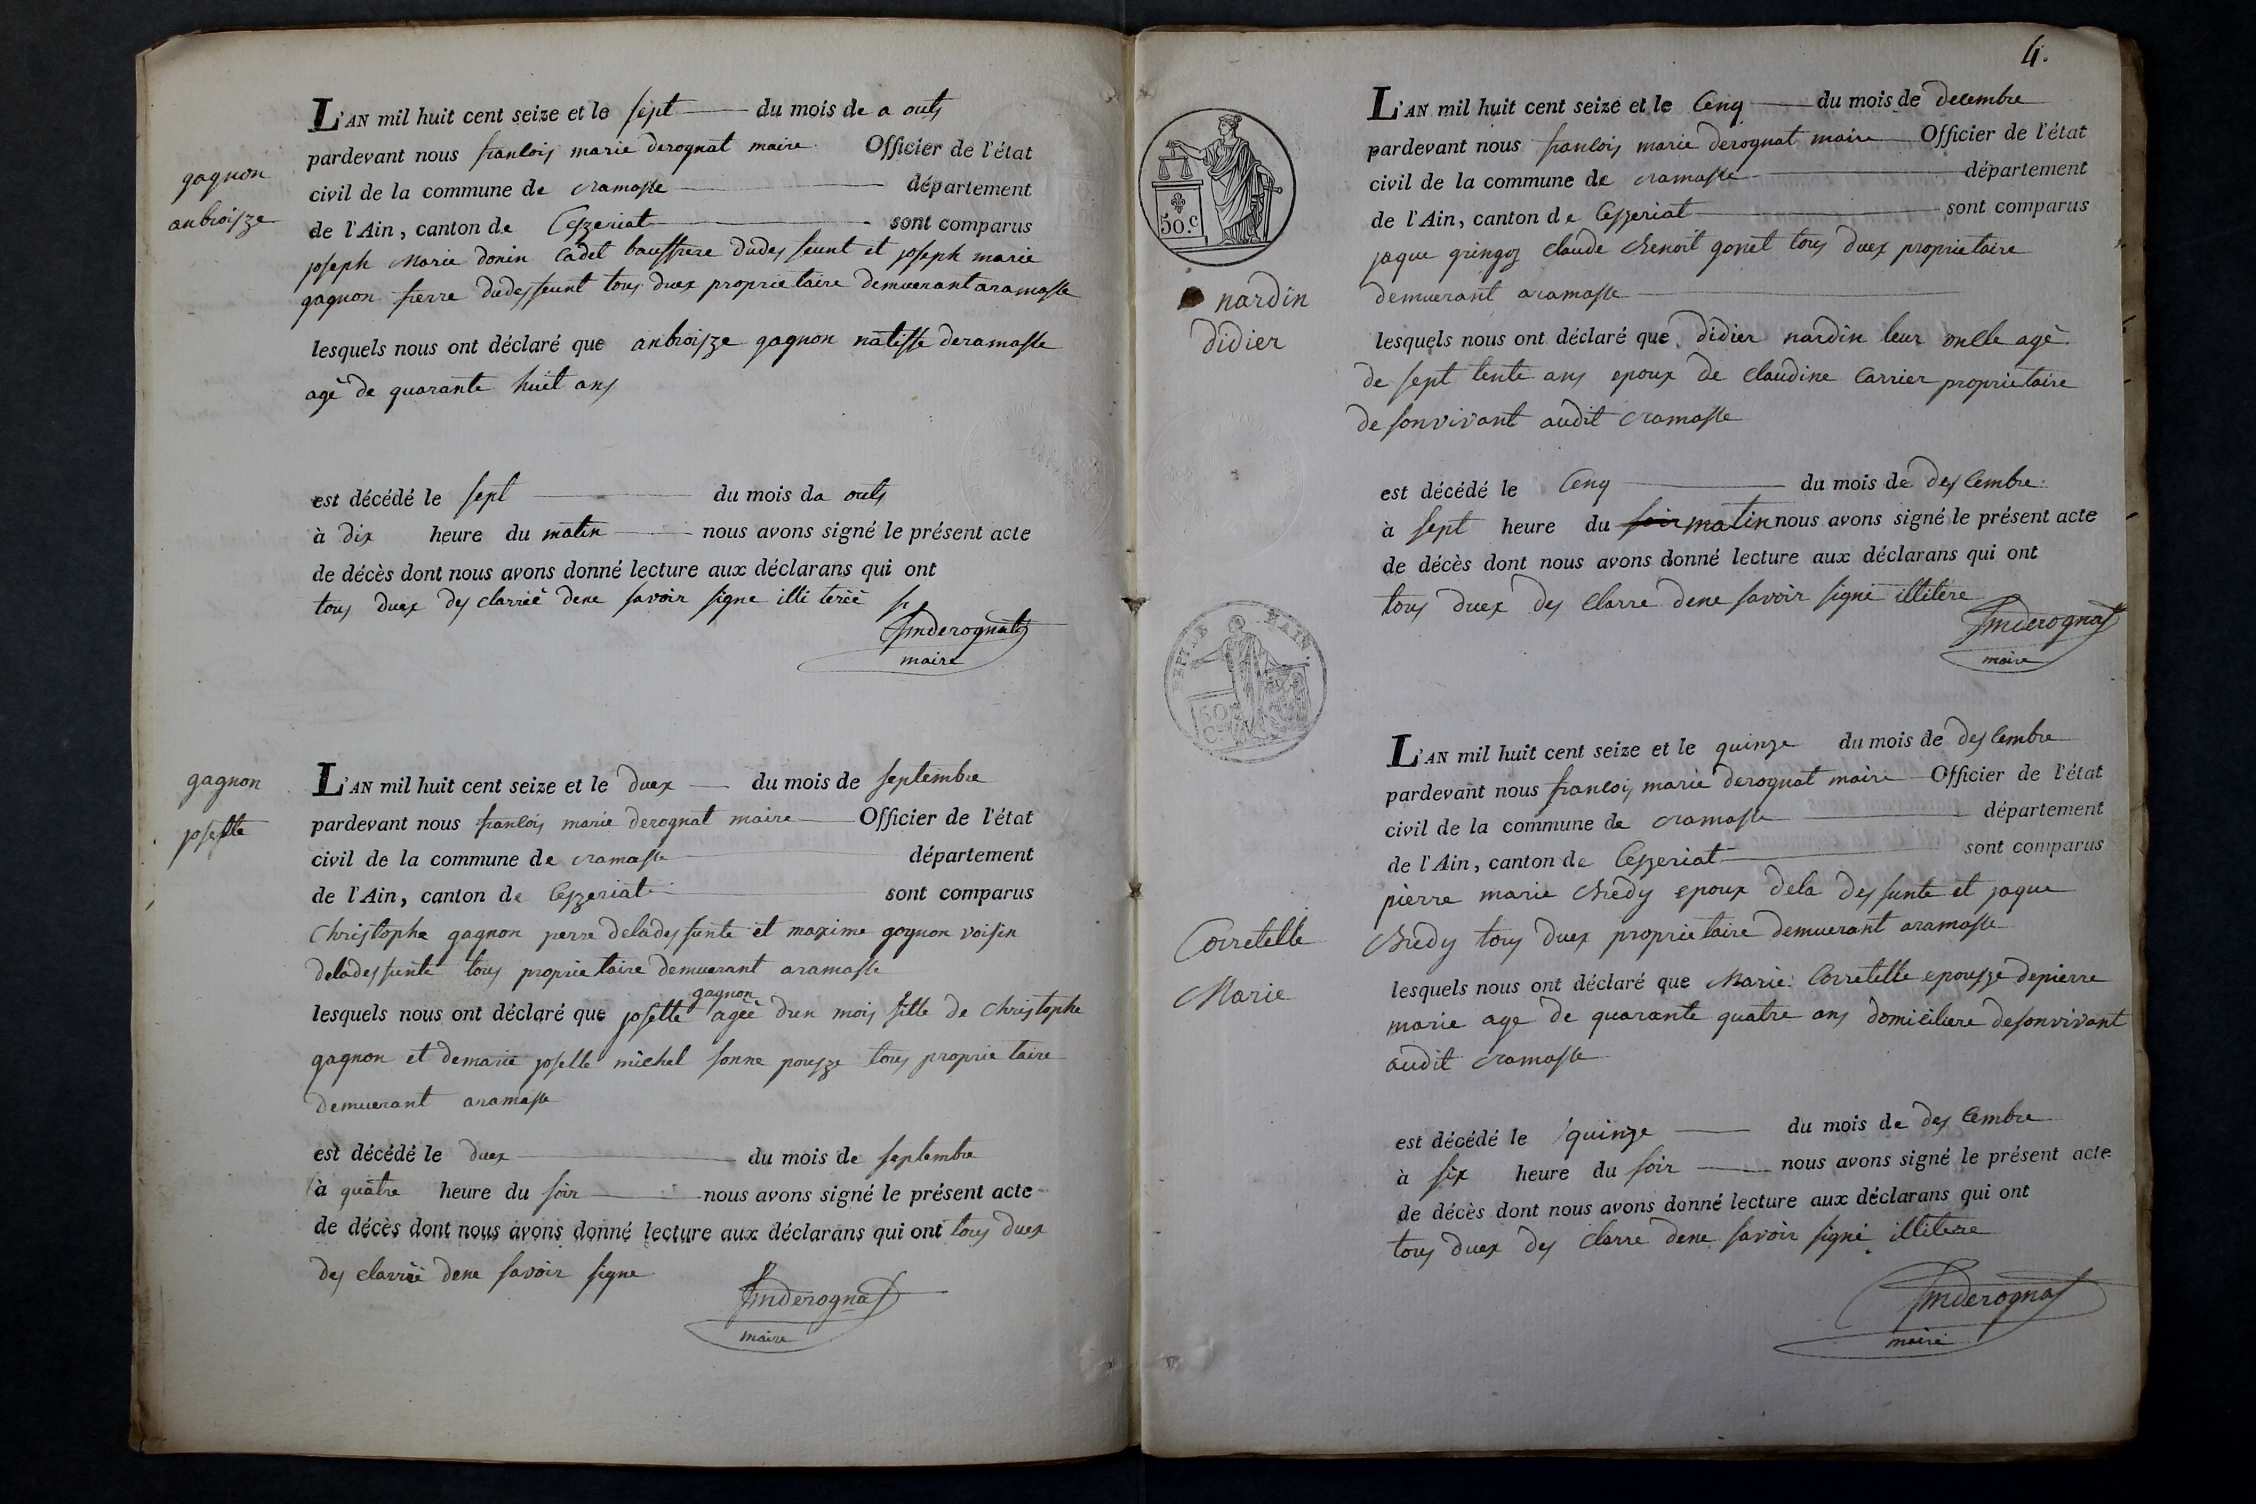 gagnon
anbroisze
L'AN mil huit cent seize et le sept du mois de a outs
pardevant nous francois marie derognat maire Officier de l'état
civil de la commune de cramasse département
de l'Ain, canton de Ceszeriat sont comparus
joseph Marie donin Cadet bauffrere dudesseunt et joseph marie
gagnon frerre dudesseunt tous duex proprietaire demuerant aramasse
lesquels nous ont déclaré que anbroisze gagnon natisse deramasse
agè de quarante huit ans
est décédé le sept du mois da outs
à dix heure du matin nous avons signé le présent acte
de décès dont nous avons donné lecture aux déclarans qui ont
tous duex des clarréé dene savoir signe illi teréé
fmderognat
maire
gagnon
josette
L'AN mil huit cent seize et le duex du mois de septembre
pardevant nous francois marie derognat maire Officier de l'état
civil de la commune de cramasse département
de l'Ain, canton de Ceszeriat sont comparus
Christophe gagnon perre deladessunte et maxime gognon voisin
deladessunte tous proprietaire demuerant aramasse
gagnon
lesquels nous ont déclaré que josette agéé dun mois fille de Christophe
gagnon et demarie joselle michel sonne pousze tous proprietaire
demuerant aramasse
est décédé le duex du mois de septembre
à quatre heure du soir nous avons signé le présent acte
de décès dont nous avons donné lecture aux déclarans qui ont tous duex
des clarréé dene savoir signe
fmderognat
maire
4.
50.c
nardin
didier
L'AN mil huit cent seize et le Cenq du mois de decembre
pardevant nous francois marie derognat maire Officier de l'état
civil de la commune de cramasse département
de l'Ain, canton de Ceszeriat sont comparus
jaque gringoz claude Benoit gonet tous duex proprietaire
demuerant aramasse
lesquels nous ont déclaré que didier nardin leur oncle agè
de sept tente ans epoux de claudine Carrier proprietaire
de sonvivant audit cramasse
est décédé le Cenq du mois de des Cembre
à sept heure du soir matin nous avons signé le présent acte
de décès dont nous avons donné lecture aux déclarans qui ont
tous duex des Clarre dene savoir signé illitere
fmderognat
maire
50
C
Corretelle
Marie
L'AN mil huit cent seize et le quinze du mois de des Cembre
pardevant nous francois marie derognat maire Officier de l'état
civil de la commune de cramasse département
de l'Ain, canton de Ceszeriat sont comparus
pierre marie Bredy epoux dela dessunte et jaque
Bredy tous duex proprietaire demuerant aramasse
lesquels nous ont déclaré que Marie Corretelle epousze depierre
marie age de quarante quatre ans domiciliere desonvivant
audit cramasse
est décédé le quinze du mois de des Cembre
à six heure du soir nous avons signé le présent acte
de décès dont nous avons donné lecture aux déclarans qui ont
tous duex des Clarre dene savoir signé illitere
fmderognat
maire